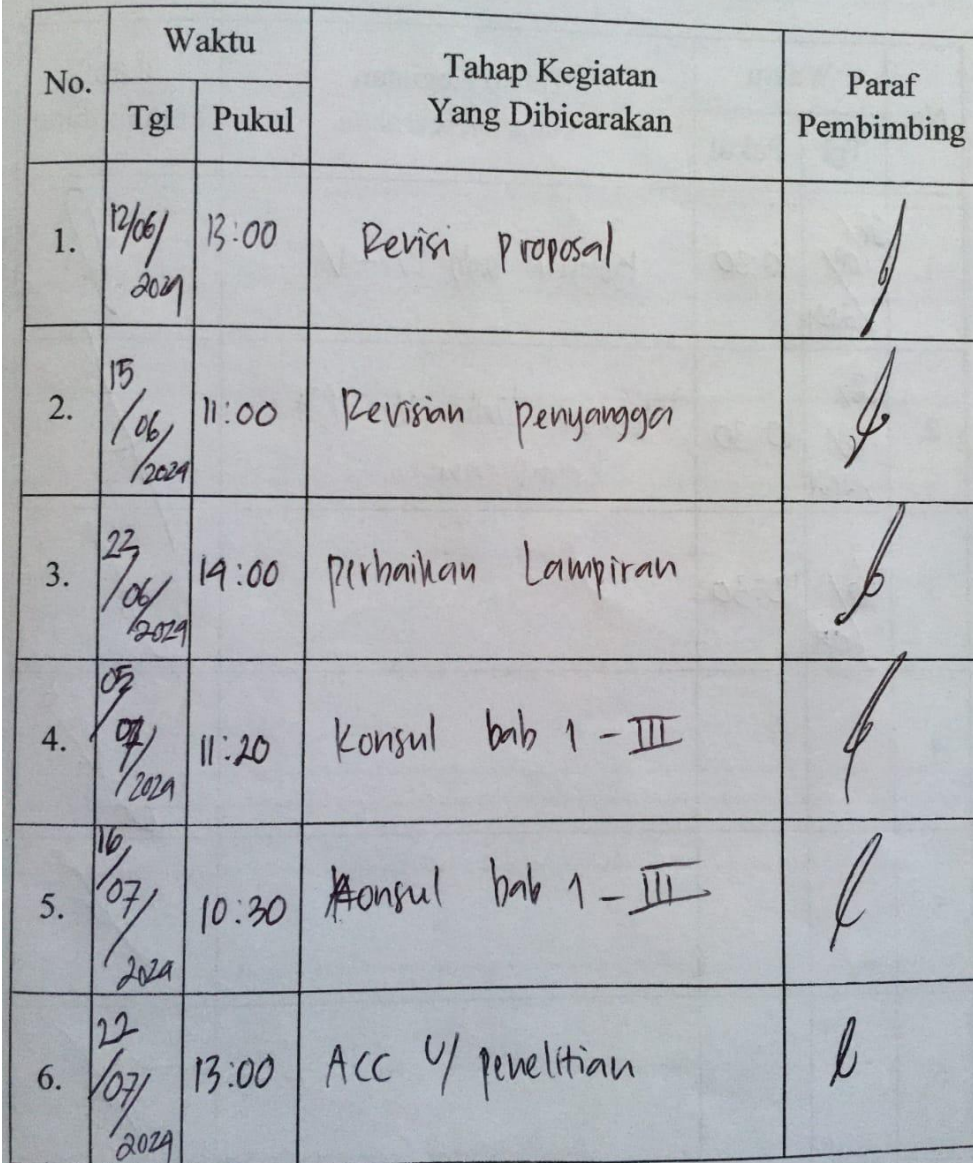 No. Waktu Tahap Kegiatan Yang Dibicarakan Paraf Pembimbing
Tgl Pukul
1. 12/06/2024 13:00 Revisi proposal
2. 15/06/2024 11:00 Revisian penyangga
3. 22/06/2024 14:00 perbaikan Lampiran
4. 05/07/2024 11:20 Konsul bab 1 - III
5. 16/07/2024 10:30 Konsul bab 1 - III
6. 22/07/2024 13:00 ACC U/ penelitian